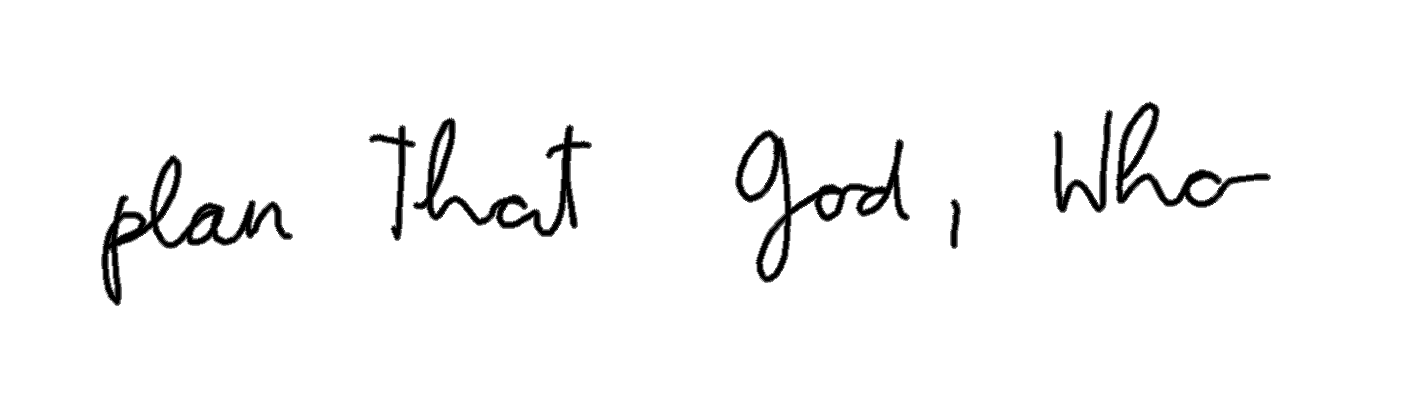 plan that god, who